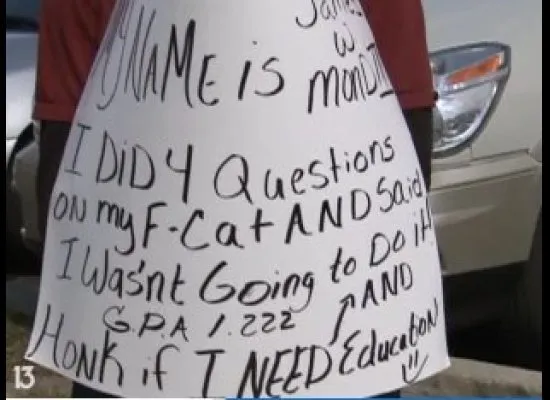 MY NAME is
James
W
MOND
I DiD 4 Questions
ON my F-Cat AND Said
I Wasn't Going to Do it!
G.P.A 1.222 AND
HONK if I NEED Education
13